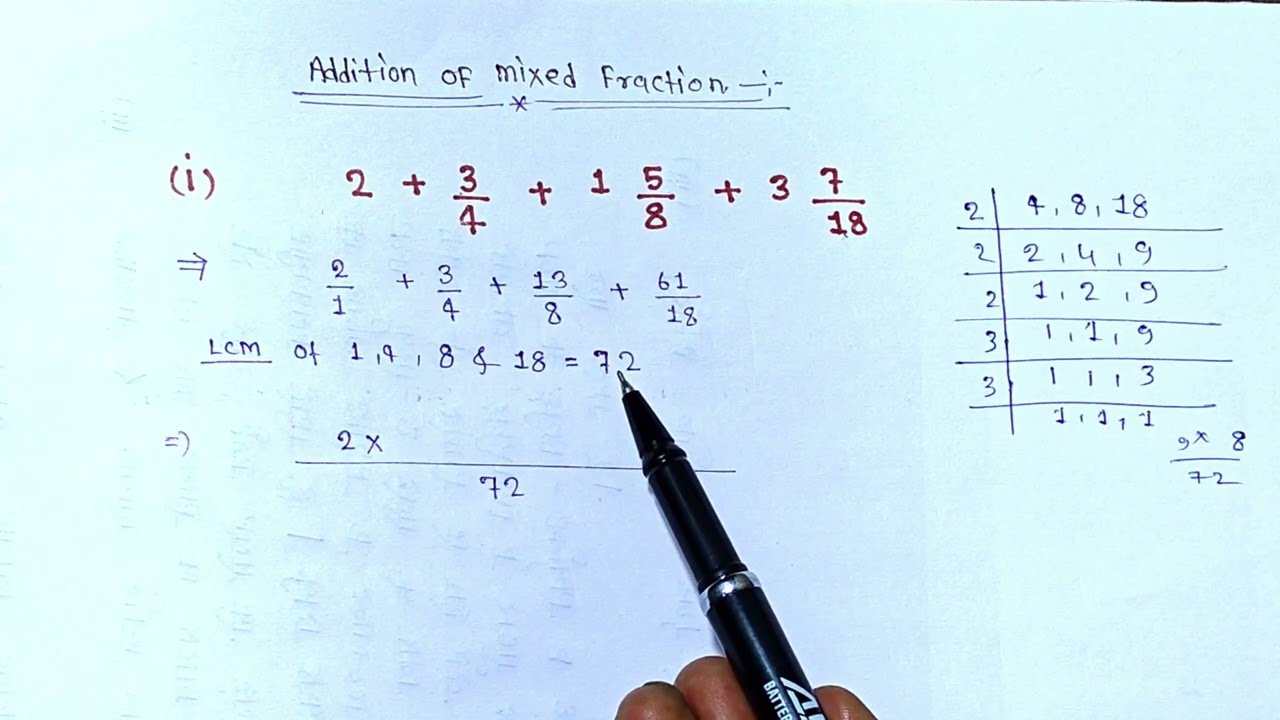 Addition of mixed Fraction -:-
(i) 2 + 3/4 + 1 5/8 + 3 7/18
⇒ 2/1 + 3/4 + 13/8 + 61/18
LCM of 1,4,8 & 18 = 72
⇒ 2×
72
2 | 4,8,18
2 | 2,4,9
2 | 1,2,9
3 | 1,1,9
3 | 1,1,3
1,1,1
9×8
72
BATTER